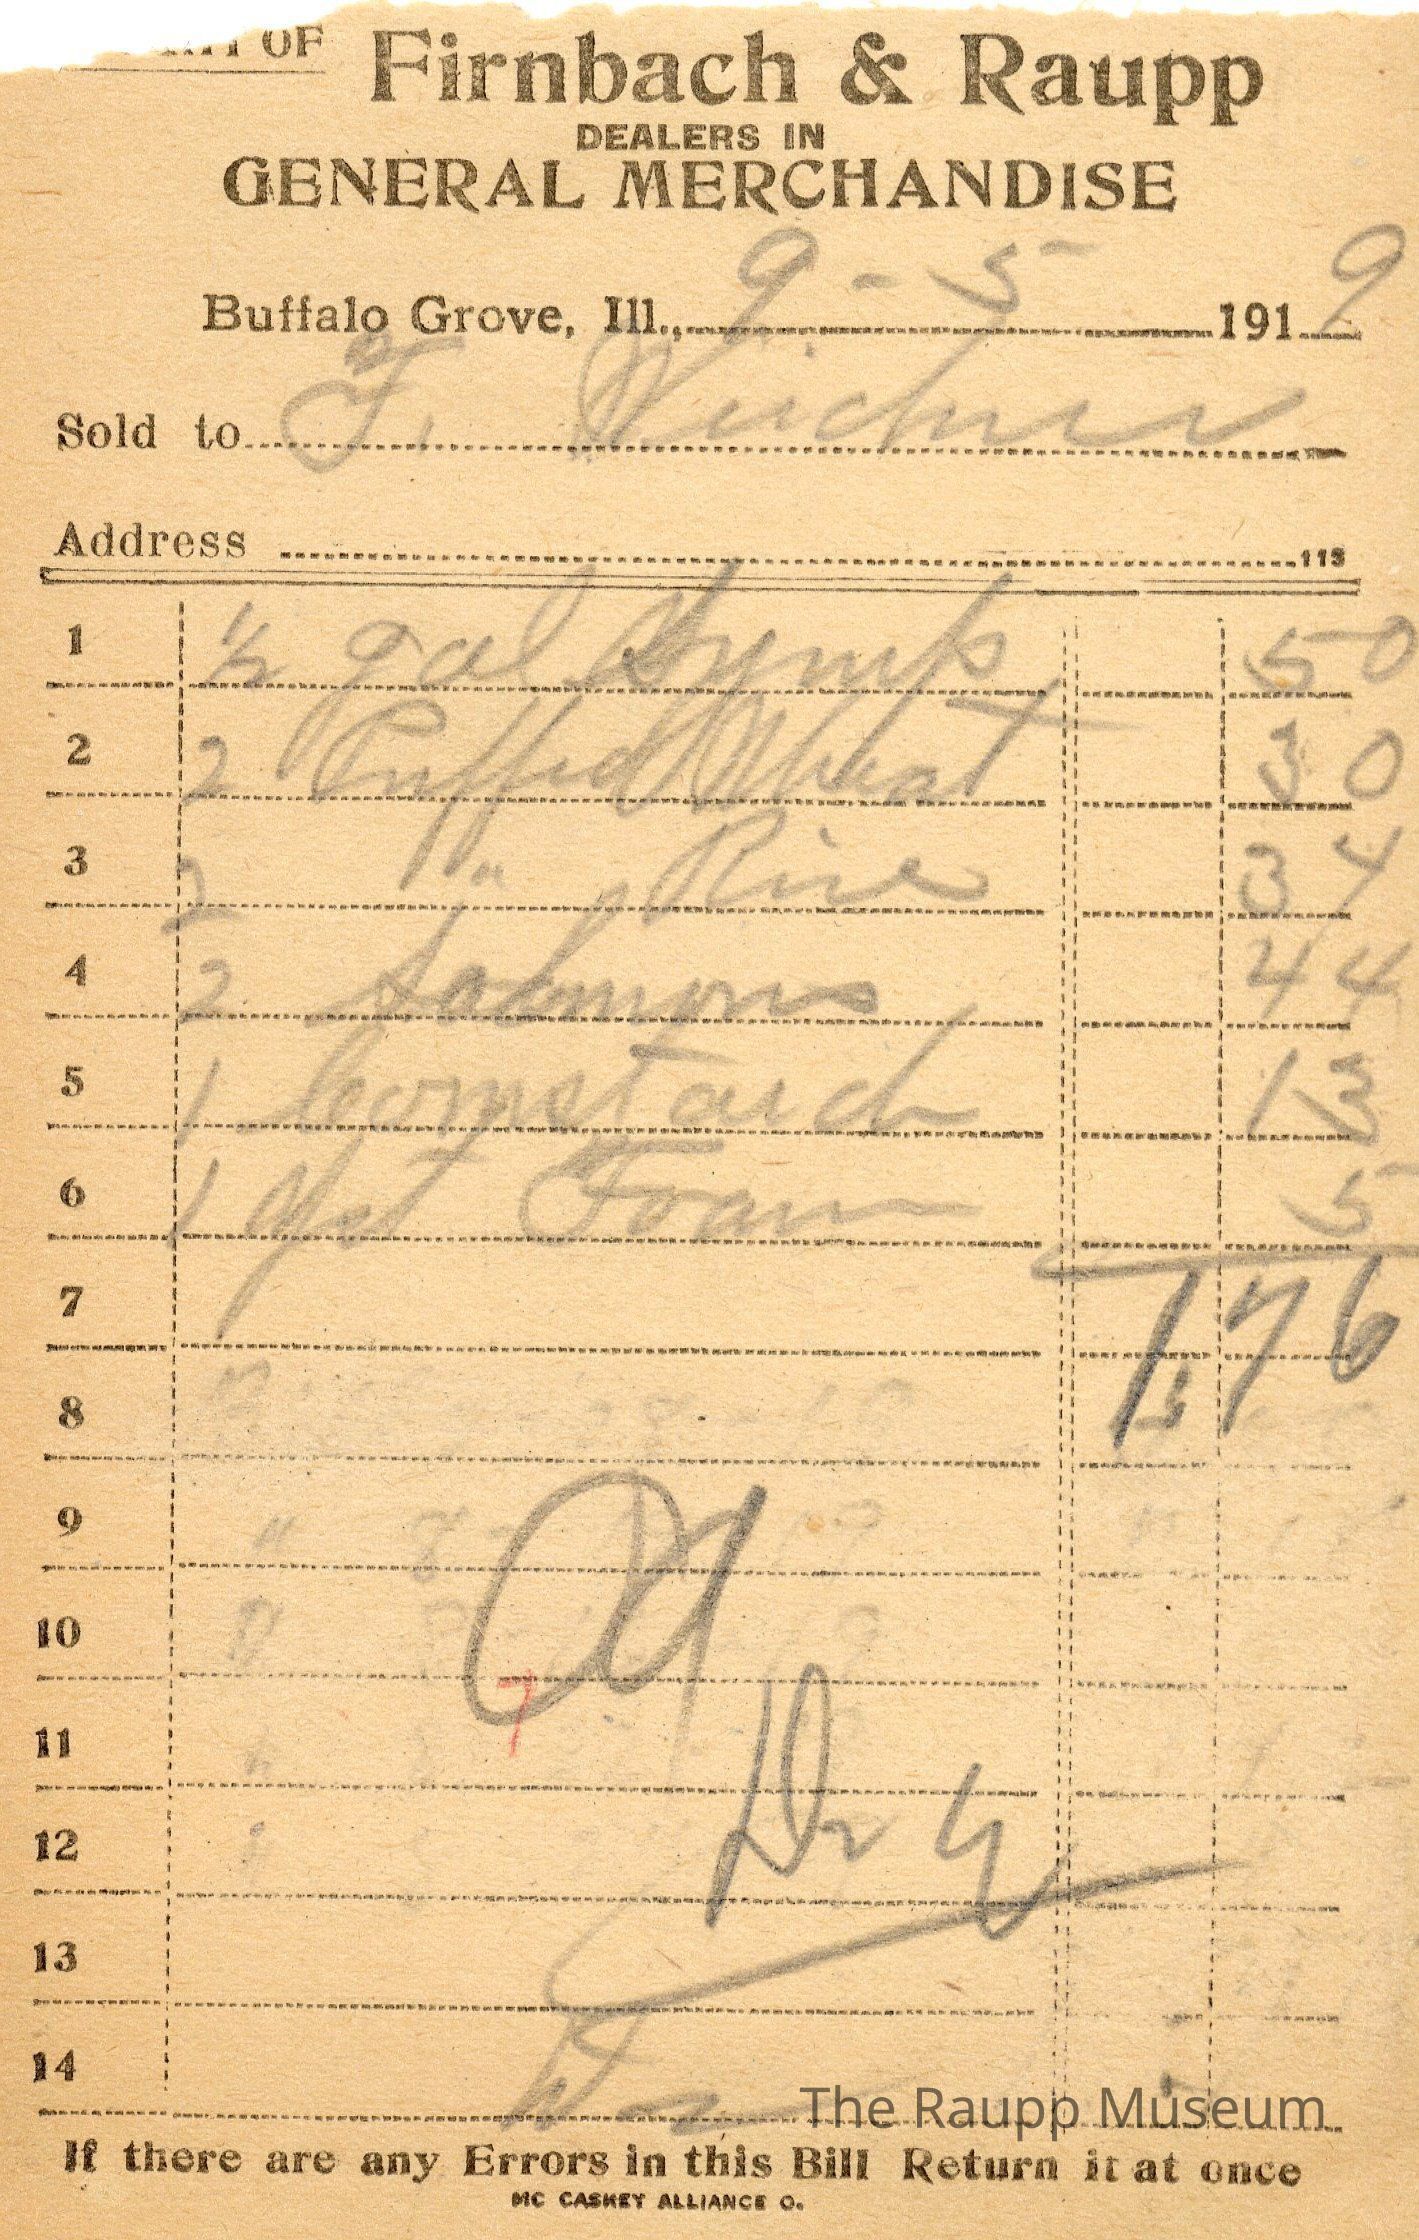 OF Firnbach & Raupp
DEALERS IN
GENERAL MERCHANDISE
Buffalo Grove, Ill., 9-5 1919
Sold to F.
Address 113
1 ½ gal Syrup 50
2 2 Puffed Wheat 30
3 2 " Rice 34
4 2 Salmons 44
5 1 Cornstarch 13
6 1 Yst Foam 5
7 1 76
8
9
10
7
11
12
13
14
The Raupp Museum
If there are any Errors in this Bill Return it at once
MC CASKEY ALLIANCE O.